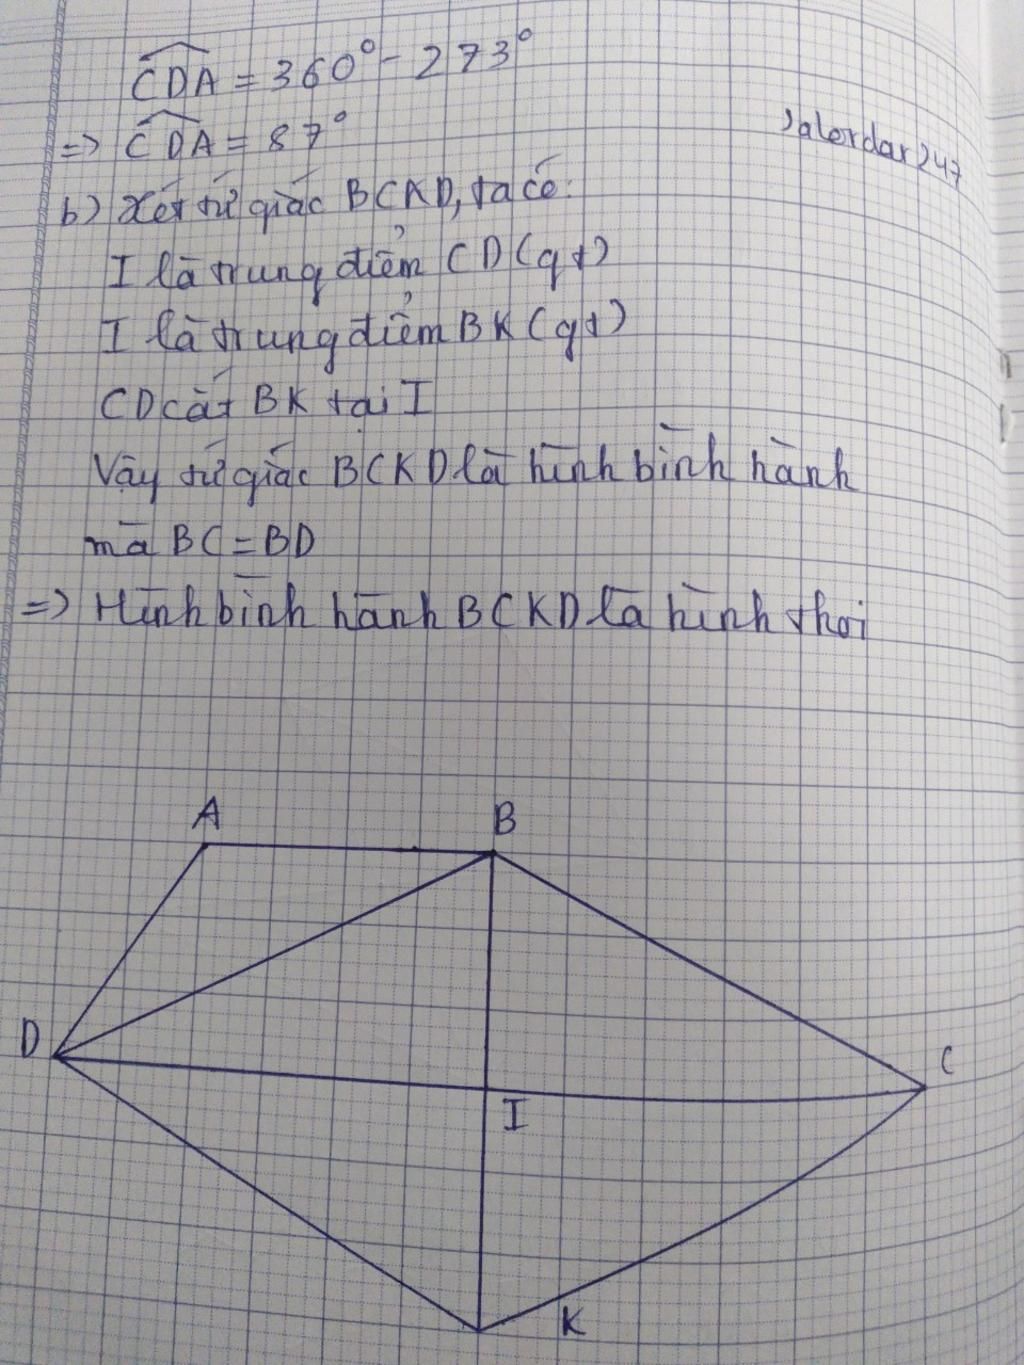 CDA = 360° - 273°
=> CDA = 87°
b) Xét tứ giác BCKD, ta có:
I là trung điểm CD (gt)
I là trung điểm BK (gt)
CD cắt BK tại I
Vậy tứ giác BCKD là hình bình hành
mà BC = BD
=> Hình bình hành BCKD là hình thoi
A
B
D
C
I
K